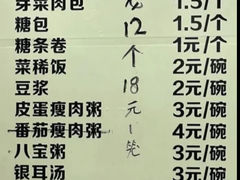 芽菜肉包 1.5/个
糖包 1.5/个
糖条卷 1元/个
菜稀饭 2元/碗
豆浆 2元/碗
皮蛋瘦肉粥 3元/碗
番茄瘦肉粥 4元/碗
八宝粥 3元/碗
银耳汤 3元/碗
12
个
18
元
一
笼